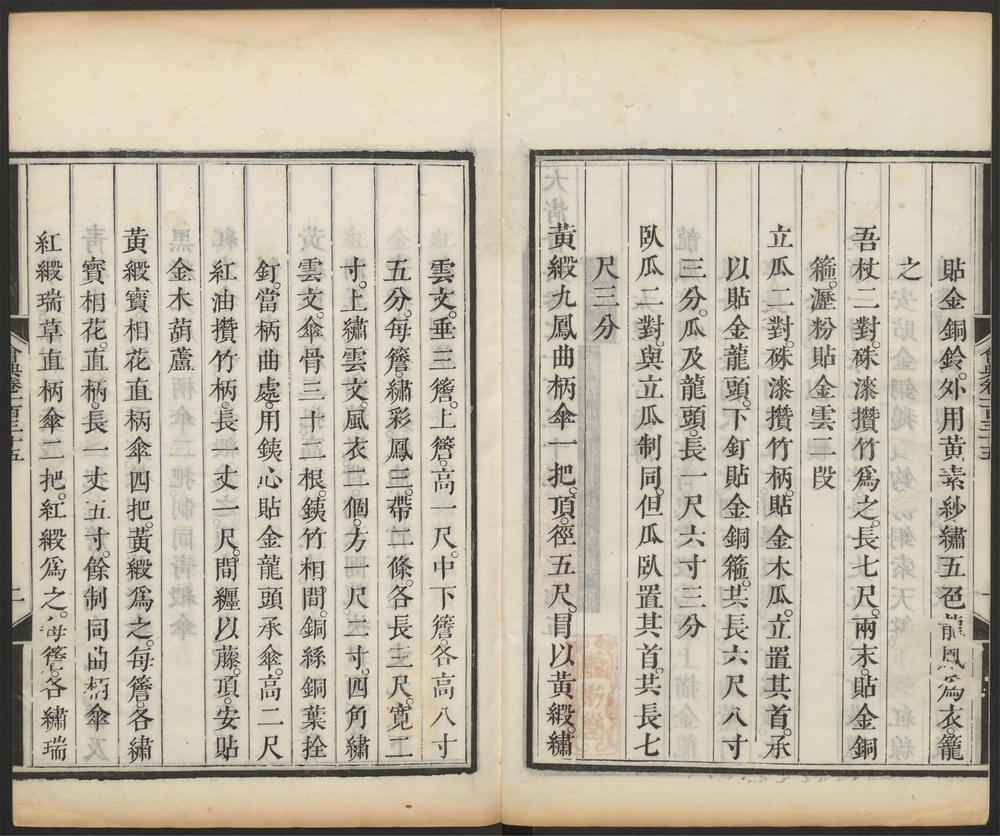 貼金銅鈴。外用黃素紗繡五色龍鳳爲衣。籠
之
吾杖二對。硃漆攢竹爲之。長七尺。兩末。貼金銅
箍。瀝粉貼金雲二段
立瓜二對。硃漆攢竹柄。貼金木瓜。立置其首。承
以貼金龍頭。下釘貼金銅箍。共長六尺八寸
三分。瓜及龍頭。長一尺六寸三分
臥瓜二對。與立瓜制同。但瓜臥置其首。共長七
尺三分
黃緞九鳳曲柄傘一把。頂。徑五尺。冐以黃緞。繡
雲文。垂三簷。上簷。高一尺。中下簷。各高八寸
五分。每簷繡彩。鳳三。帶二條。各長三尺。寬二
寸。上繡雲文。風衣二個。方一尺二寸。四角繡
雲文。傘骨三十二根。銕竹相間。銅絲銅葉拴
釘。當柄曲處。用銕心貼金龍頭承傘。高二尺
紅油攢竹柄。長一丈一尺。間纒以藤。頂。安貼
金木葫蘆
黃緞寶相花直柄傘四把。黃緞爲之。每簷。各繡
寶相花。直柄。長一丈五寸。餘制同曲柄傘
紅緞瑞草直柄傘二把。紅緞爲之。每簷。各繡瑞